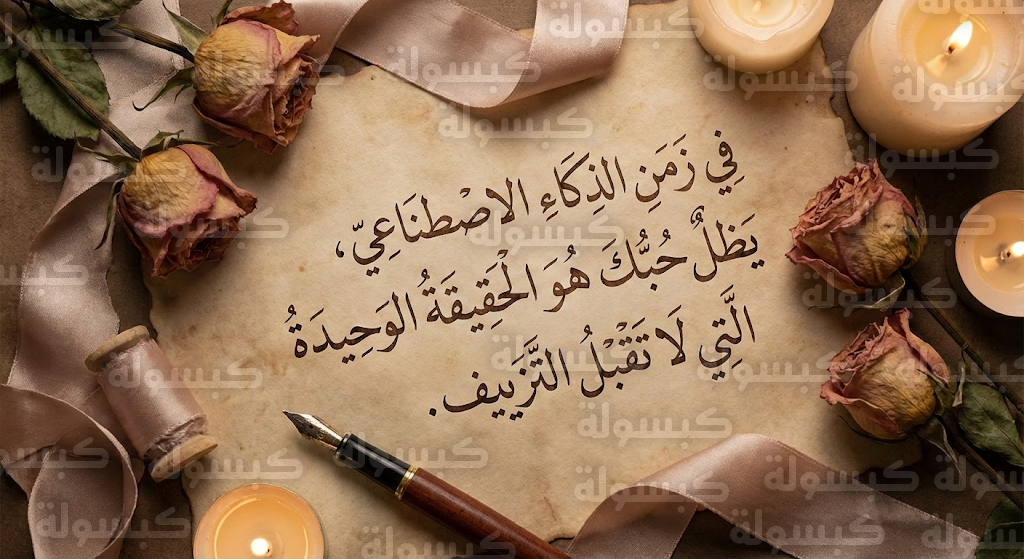 فِي زَمَنِ الذِكَاءِ الاصْطنَاعِيّ،
يَظلُ حُبُّكَ هُوَ الْحَقِيقَةُ الوَحِيدَةُ
الَّتِي لَا تَقْبَلُ التَّزْيِيف.
كبسولة